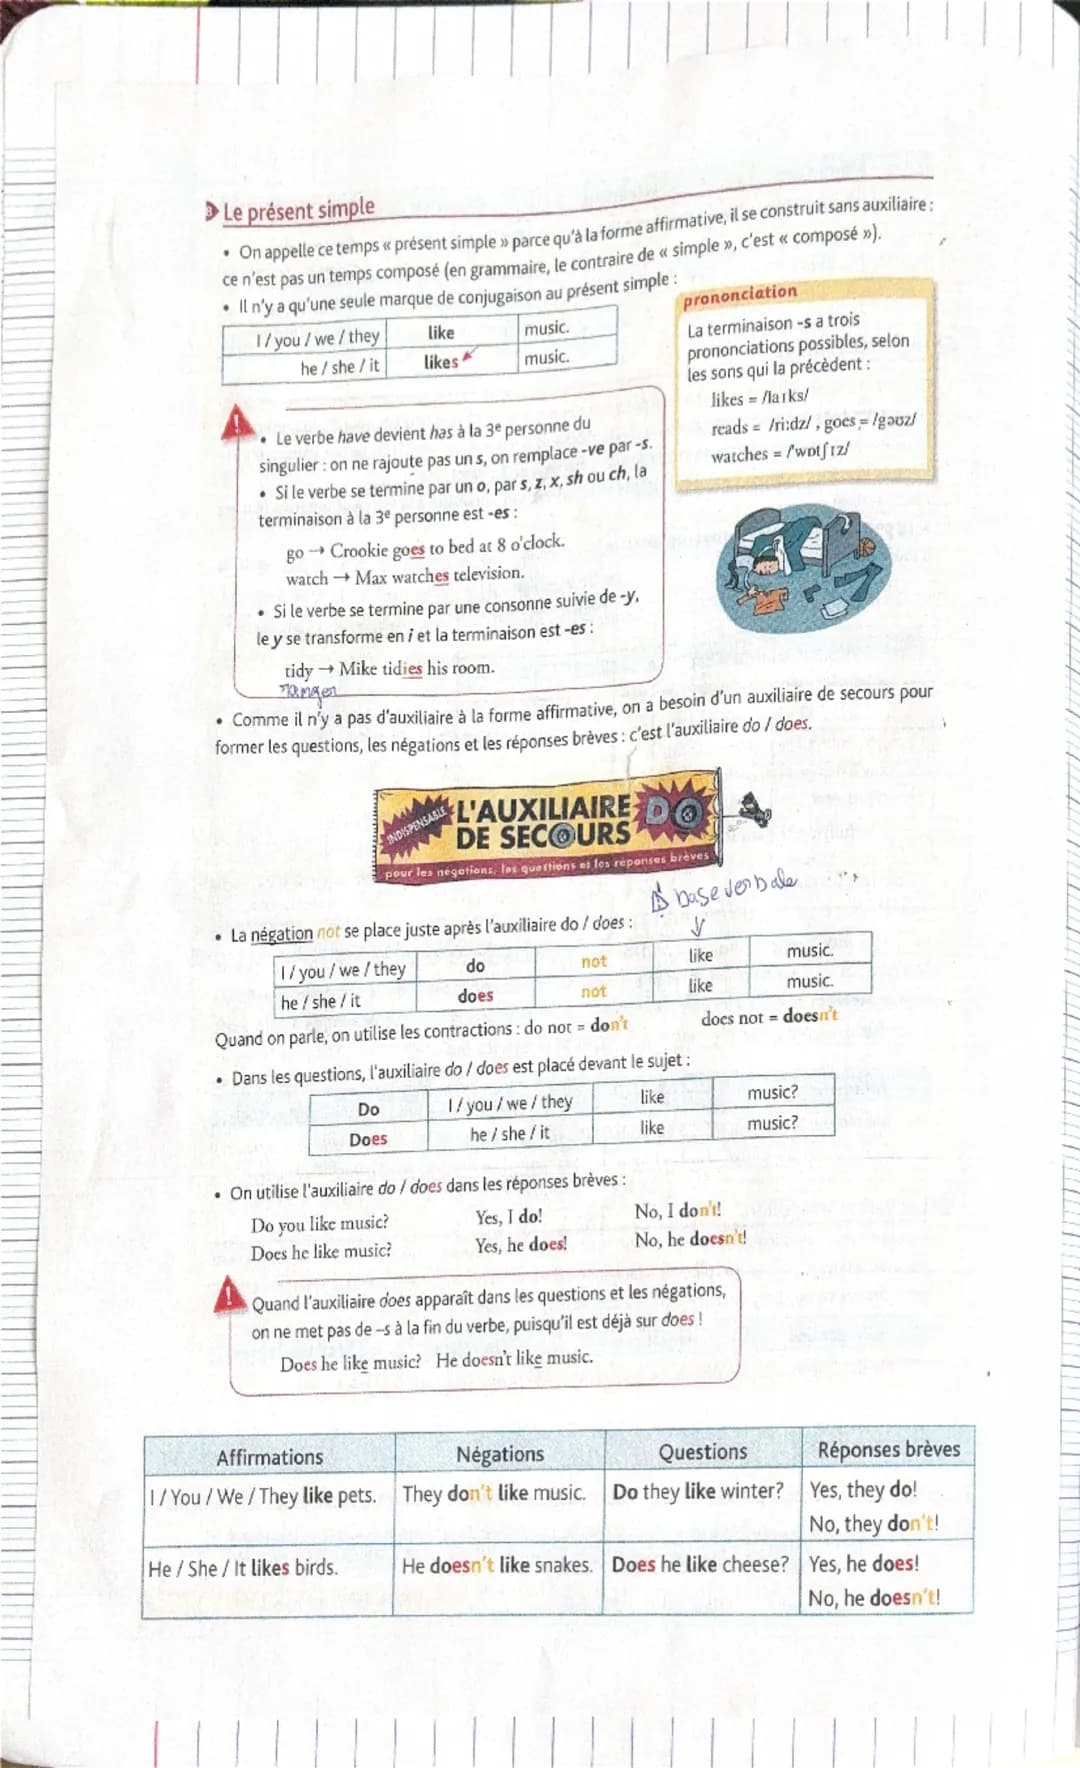 Le présent simple
• On appelle ce temps « présent simple » parce qu'à la forme affirmative, il se construit sans auxiliaire :
ce n'est pas un temps composé (en grammaire, le contraire de « simple », c'est « composé »).
• Il n'y a qu'une seule marque de conjugaison au présent simple :
I / you / we / they like music.
he / she / it likes music.
prononciation
La terminaison -s a trois
prononciations possibles, selon
les sons qui la précèdent :
likes = /laɪks/
reads = /riːdz/ , goes = /gəʊz/
watches = /'wɒtʃɪz/
! • Le verbe have devient has à la 3e personne du
singulier : on ne rajoute pas un s, on remplace -ve par -s.
• Si le verbe se termine par un o, par s, z, x, sh ou ch, la
terminaison à la 3e personne est -es :
go → Crookie goes to bed at 8 o'clock.
watch → Max watches television.
• Si le verbe se termine par une consonne suivie de -y,
le y se transforme en i et la terminaison est -es :
tidy → Mike tidies his room.
ranger
• Comme il n'y a pas d'auxiliaire à la forme affirmative, on a besoin d'un auxiliaire de secours pour
former les questions, les négations et les réponses brèves : c'est l'auxiliaire do / does.
INDISPENSABLE
L'AUXILIAIRE DO
DE SECOURS
pour les négations, les questions et les réponses brèves
⚠ base verbale
• La négation not se place juste après l'auxiliaire do / does :
I / you / we / they do not like music.
he / she / it does not like music.
Quand on parle, on utilise les contractions : do not = don't does not = doesn't
• Dans les questions, l'auxiliaire do / does est placé devant le sujet :
Do I / you / we / they like music?
Does he / she / it like music?
• On utilise l'auxiliaire do / does dans les réponses brèves :
Do you like music? Yes, I do! No, I don't!
Does he like music? Yes, he does! No, he doesn't!
! Quand l'auxiliaire does apparaît dans les questions et les négations,
on ne met pas de -s à la fin du verbe, puisqu'il est déjà sur does !
Does he like music? He doesn't like music.
Affirmations Négations Questions Réponses brèves
I / You / We / They like pets. They don't like music. Do they like winter? Yes, they do!
No, they don't!
He / She / It likes birds. He doesn't like snakes. Does he like cheese? Yes, he does!
No, he doesn't!